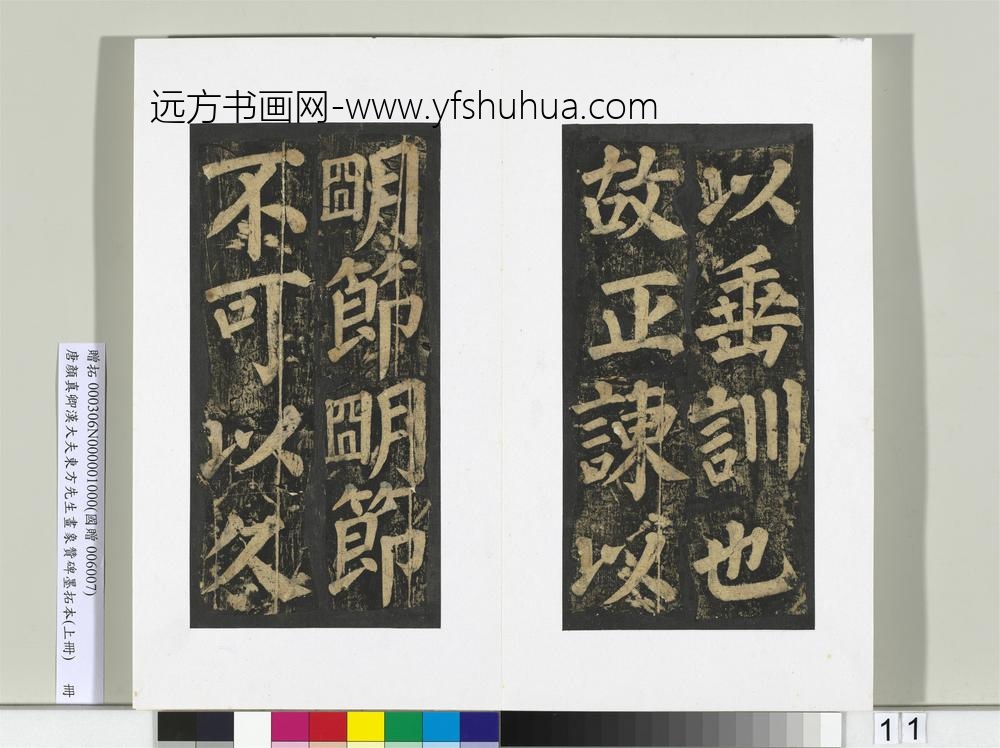 远方书画网-www.yfshuhua.com
以垂訓也
故正諫以
明節明節
不可以久
贈拓 000306N000001000(國贈 006007)
唐顏真卿漢大夫東方先生畫象贊碑墨拓本(上冊) 冊
11